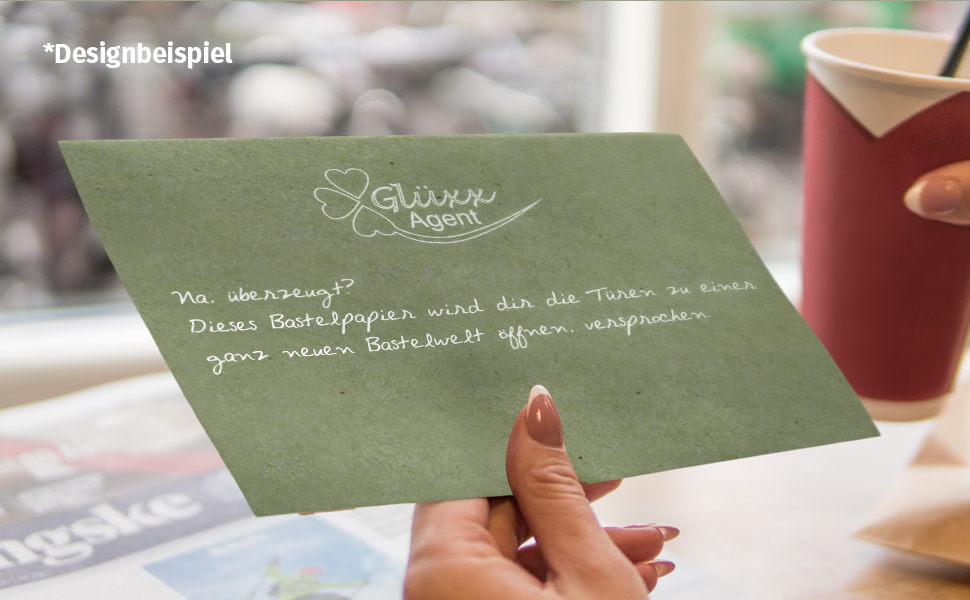 *Designbeispiel
Glüxx
Agent
Na, überzeugt?
Dieses Bastelpapier wird dir die Türen zu einer
ganz neuen Bastelwelt öffnen, versprochen.
ngske